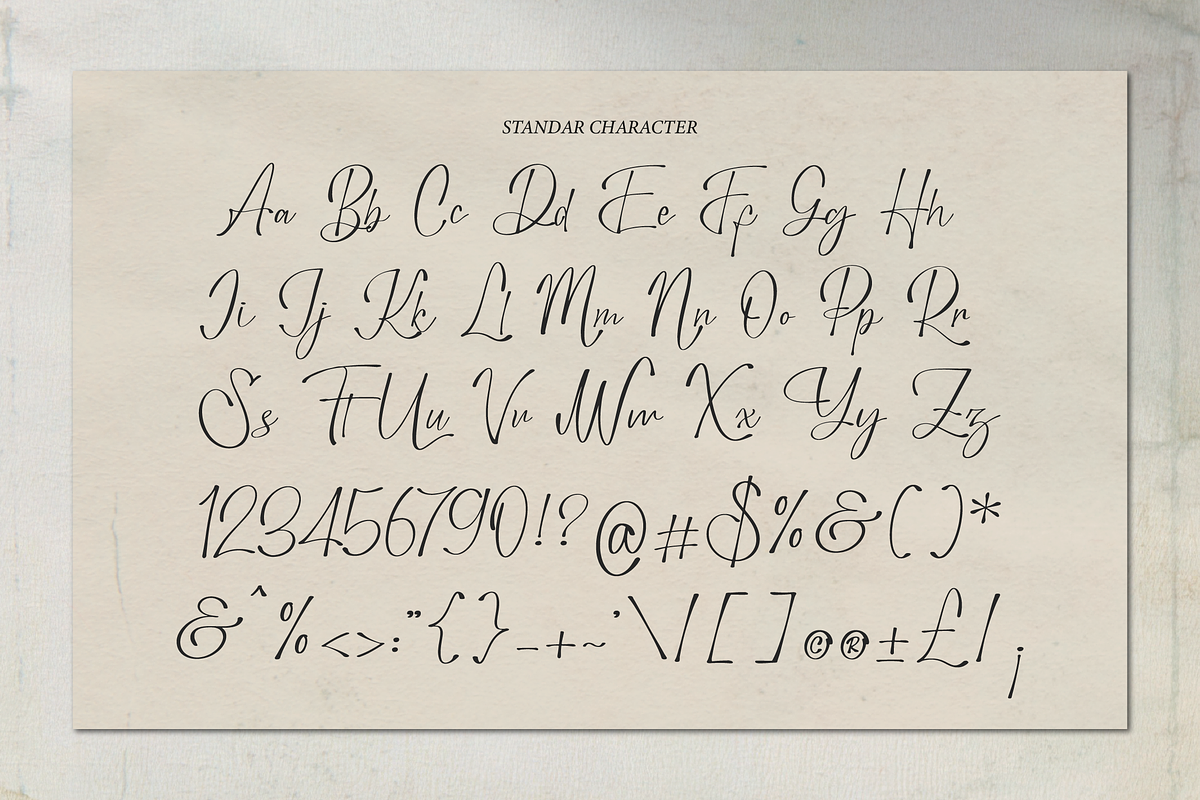 STANDAR CHARACTER
Aa Bb Cc Dd Ee Ff Gg Hh
Ii Jj Kk Ll Mm Nn Oo Pp Rr
Ss Tt Uu Vv Ww Xx Yy Zz
123456790!?@#$%&()*
&^%<>:"{}_+~'\/[]©®±£/¡